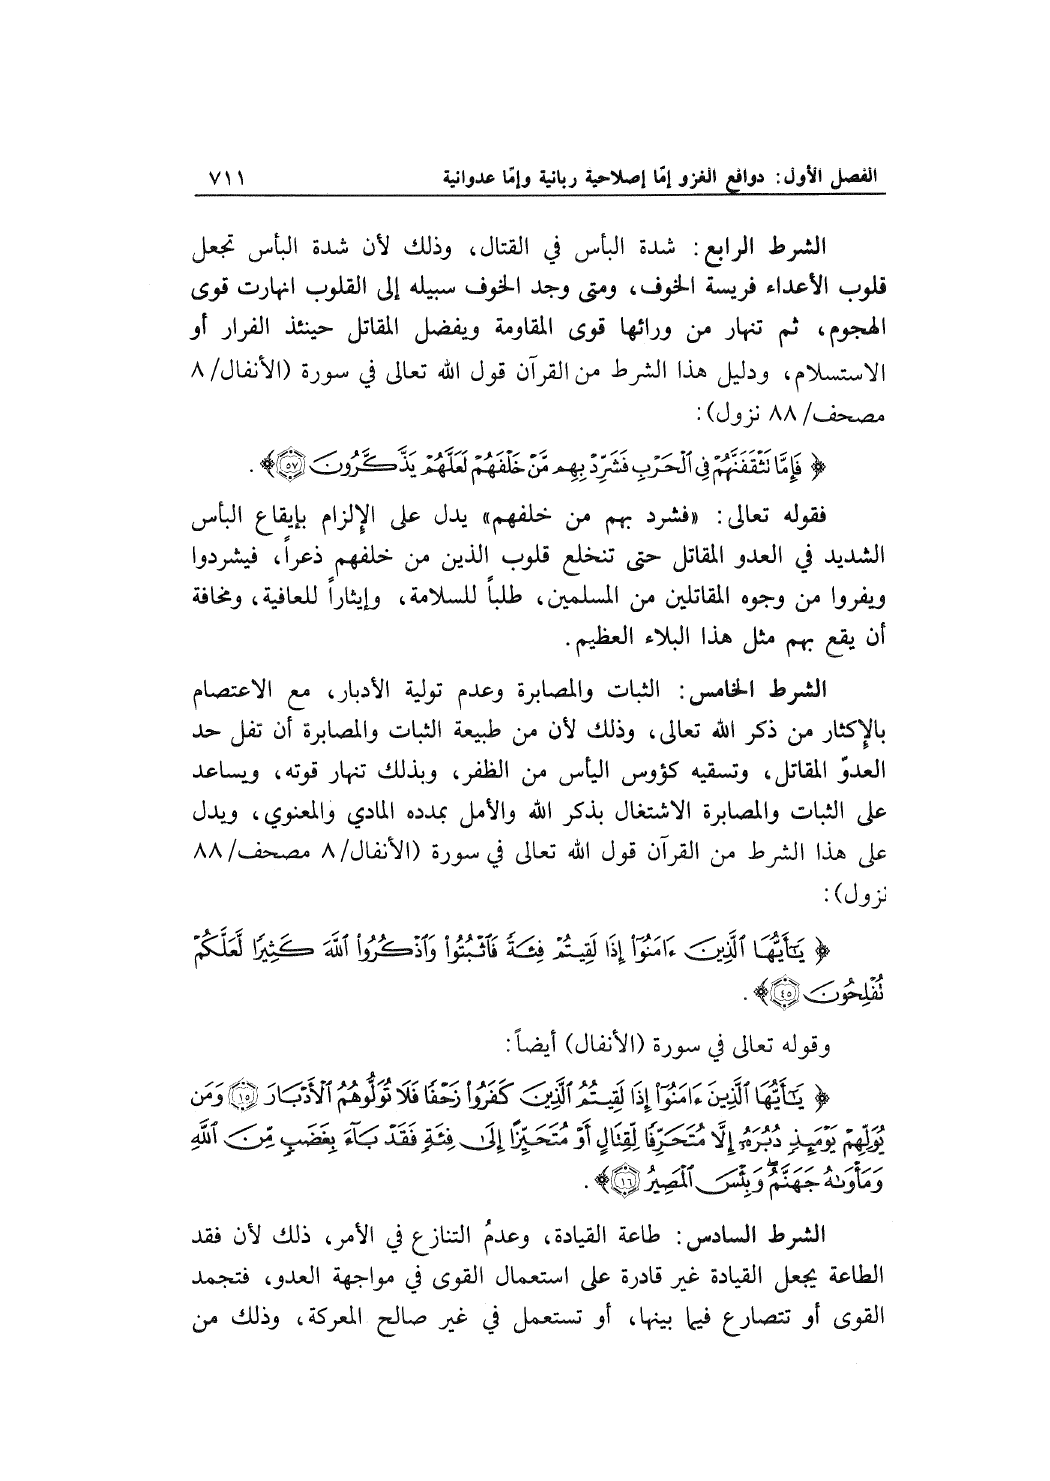 الفصل الأول: دوافع الغزو إمّا إصلاحية ربانية وإمّا عدوانية ٧١١
الشرط الرابع: شدة البأس في القتال، وذلك لأن شدة البأس تجعل
قلوب الأعداء فريسة الخوف، ومتى وجد الخوف سبيله إلى القلوب انهارت قوى
الهجوم، ثم تنهار من ورائها قوى المقاومة ويفضل المقاتل حينئذ الفرار أو
الاستسلام، ودليل هذا الشرط من القرآن قول الله تعالى في سورة (الأنفال/ ٨
مصحف/ ٨٨ نزول):
﴿ فَإِمَّا تَثْقَفَنَّهُمْ فِي ٱلْحَرْبِ فَشَرِّدْ بِهِم مَّنْ خَلْفَهُمْ لَعَلَّهُمْ يَذَّكَّرُونَ ٥٧ ﴾.
فقوله تعالى: «فشرد بهم من خلفهم» يدل على الإلزام بإيقاع البأس
الشديد في العدو المقاتل حتى تنخلع قلوب الذين من خلفهم ذعراً، فيشردوا
ويفروا من وجوه المقاتلين من المسلمين، طلباً للسلامة، وإيثاراً للعافية، ومخافة
أن يقع بهم مثل هذا البلاء العظيم.
الشرط الخامس: الثبات والمصابرة وعدم تولية الأدبار، مع الاعتصام
بالإكثار من ذكر الله تعالى، وذلك لأن من طبيعة الثبات والمصابرة أن تفل حد
العدوّ المقاتل، وتسقيه كؤوس اليأس من الظفر، وبذلك تنهار قوته، ويساعد
على الثبات والمصابرة الاشتغال بذكر الله والأمل بمدده المادي والمعنوي، ويدل
على هذا الشرط من القرآن قول الله تعالى في سورة (الأنفال/ ٨ مصحف/ ٨٨
نزول):
﴿ يَـٰٓأَيُّهَا ٱلَّذِينَ ءَامَنُوٓا۟ إِذَا لَقِيتُمْ فِئَةً فَٱثْبُتُوا۟ وَٱذْكُرُوا۟ ٱللَّهَ كَثِيرًا لَّعَلَّكُمْ
تُفْلِحُونَ ٤٥ ﴾.
وقوله تعالى في سورة (الأنفال) أيضاً:
﴿ يَـٰٓأَيُّهَا ٱلَّذِينَ ءَامَنُوٓا۟ إِذَا لَقِيتُمُ ٱلَّذِينَ كَفَرُوا۟ زَحْفًا فَلَا تُوَلُّوهُمُ ٱلْأَدْبَارَ ١٥ وَمَن
يُوَلِّهِمْ يَوْمَئِذٍ دُبُرَهُۥٓ إِلَّا مُتَحَرِّفًا لِّقِتَالٍ أَوْ مُتَحَيِّزًا إِلَىٰ فِئَةٍ فَقَدْ بَآءَ بِغَضَبٍ مِّنَ ٱللَّهِ
وَمَأْوَىٰهُ جَهَنَّمُ ۖ وَبِئْسَ ٱلْمَصِيرُ ١٦ ﴾.
الشرط السادس: طاعة القيادة، وعدمُ التنازع في الأمر، ذلك لأن فقد
الطاعة يجعل القيادة غير قادرة على استعمال القوى في مواجهة العدو، فتجمد
القوى أو تتصارع فيما بينها، أو تستعمل في غير صالح المعركة، وذلك من